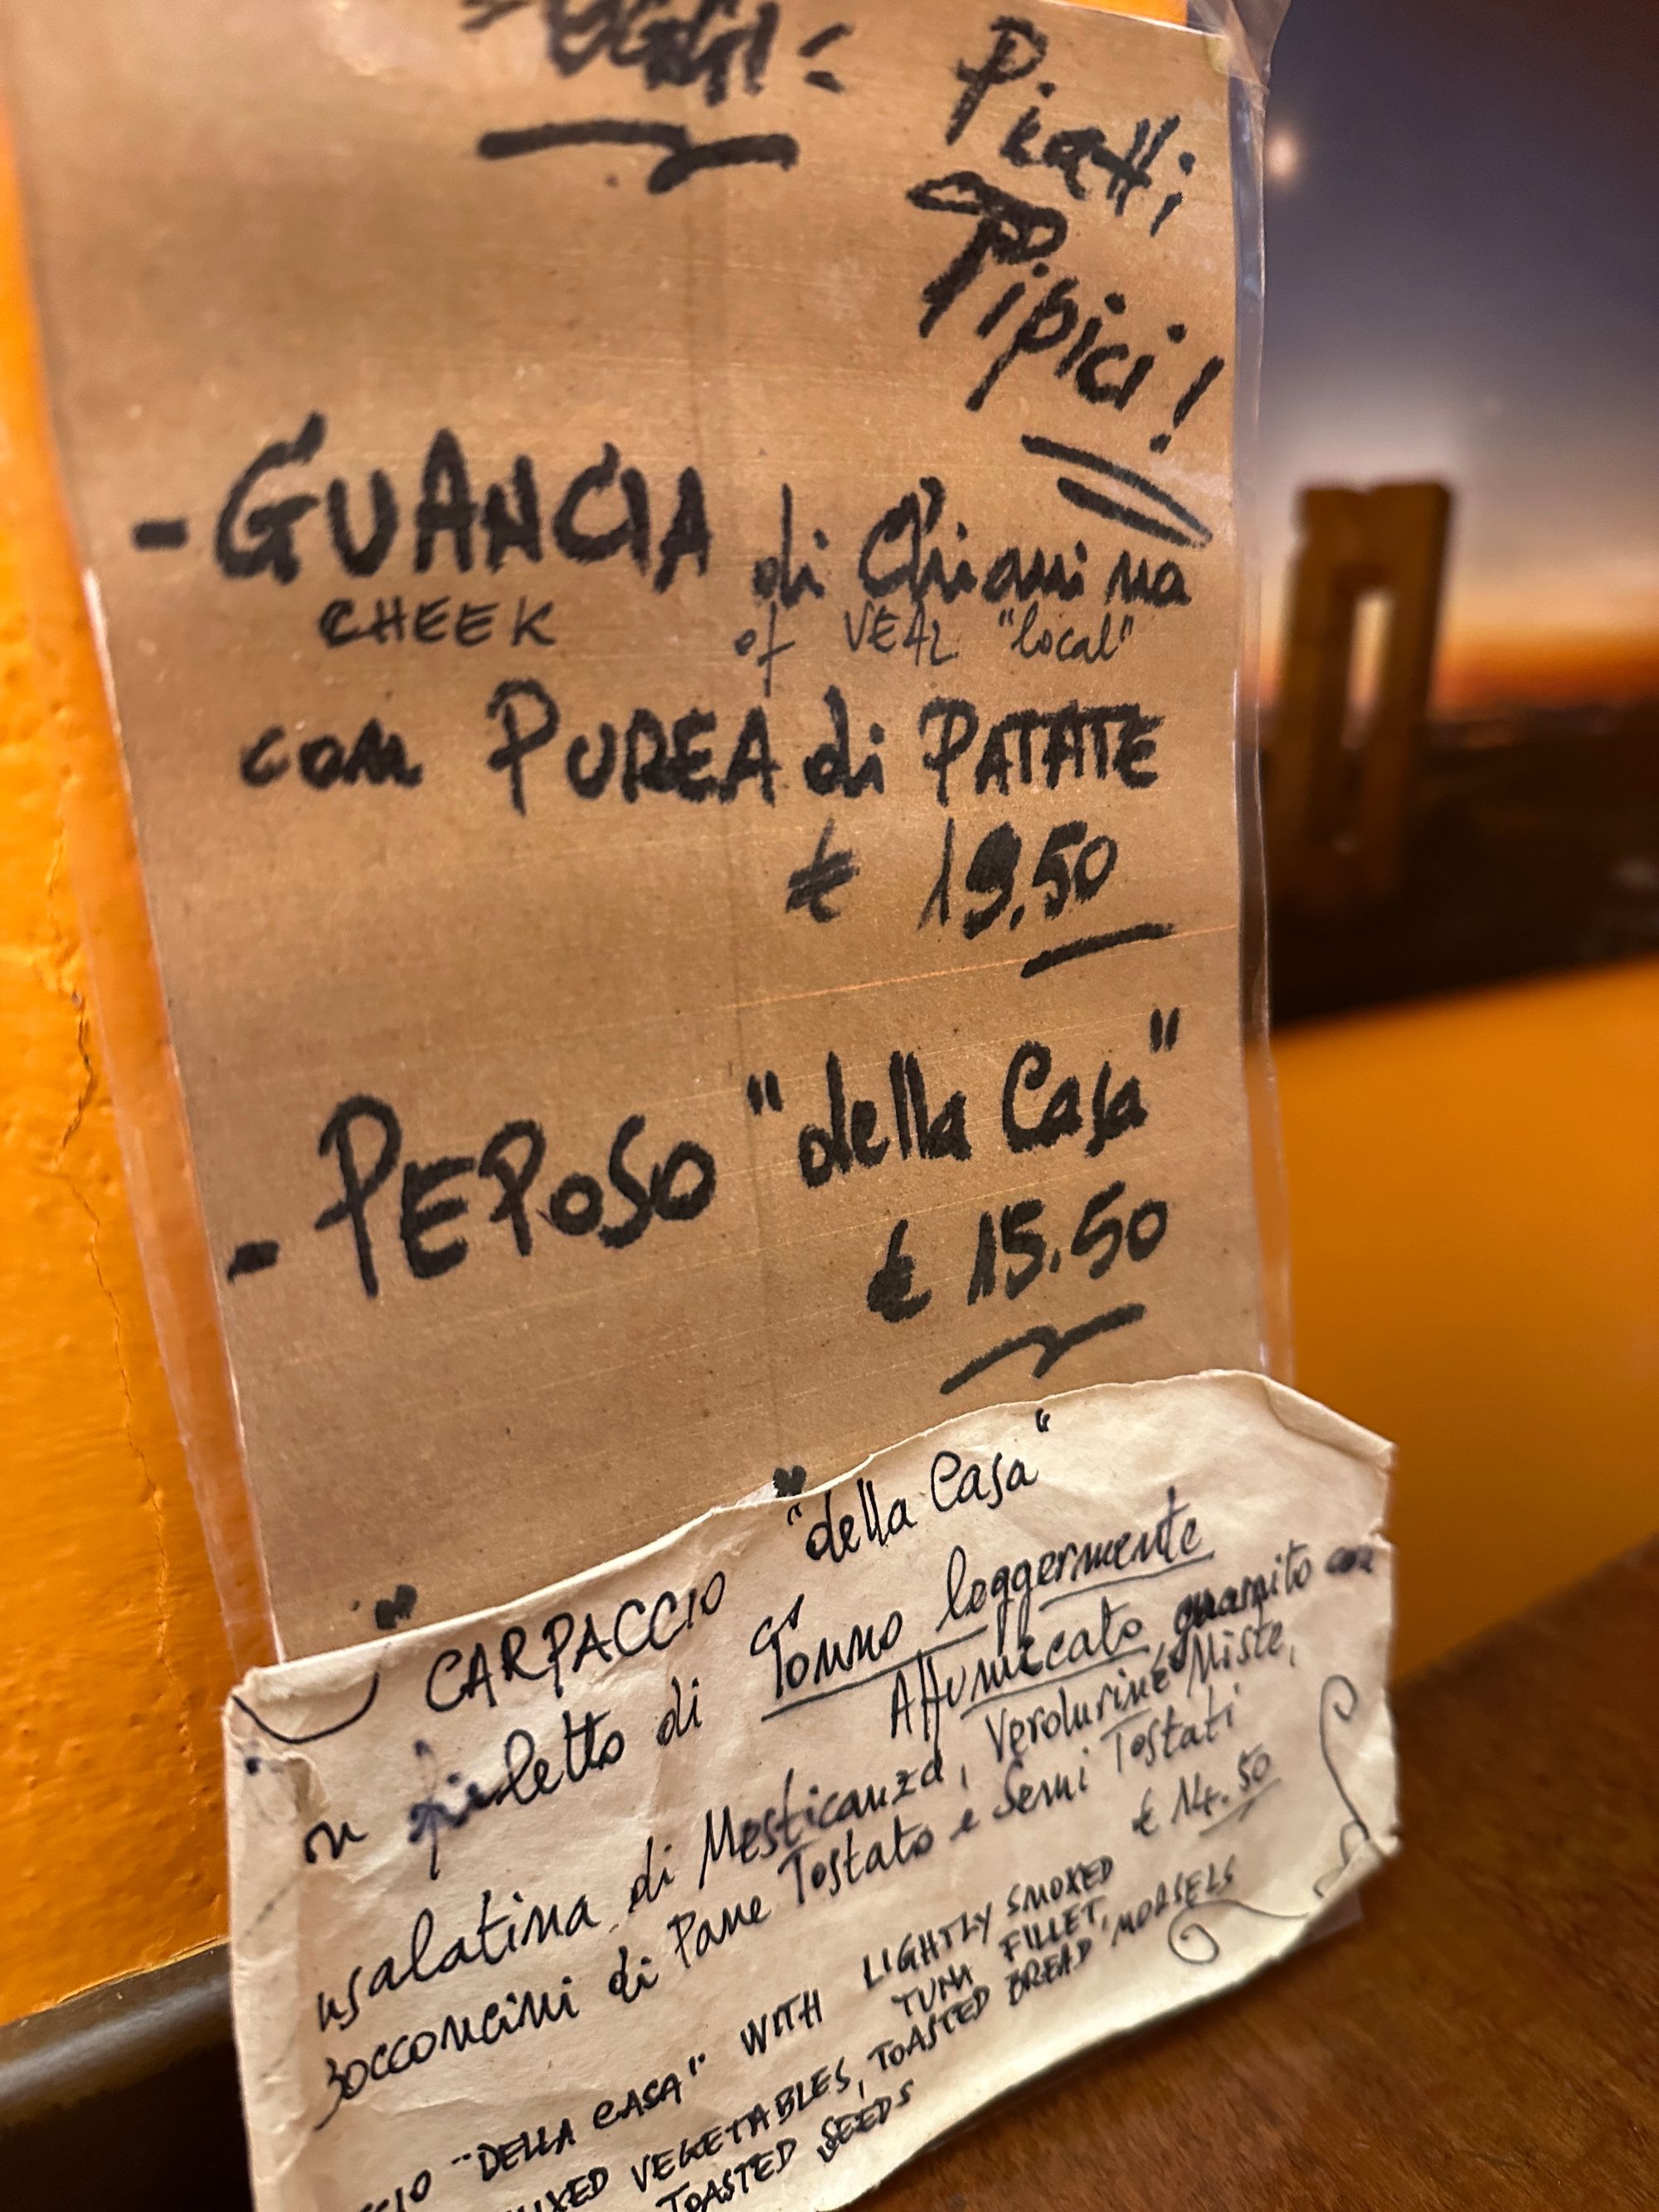 OGGI:
Piatti
Tipici!
- GUANCIA di Chianina
CHEEK of VEAL "local"
con PUREA di PATATE
€ 19,50
- PEPOSO "della Casa"
€ 15.50
CARPACCIO "della Casa"
di Tonno leggermente
Affumicato guarnito con
usalatina di Mesticanza, Verdurine Miste,
Bocconcini di Pane Tostato e Semi Tostati
€ 14.50
"DELLA CASA" WITH LIGHTLY SMOKED
TUNA FILLET,
VEGETABLES, TOASTED BREAD MORSELS
TOASTED SEEDS